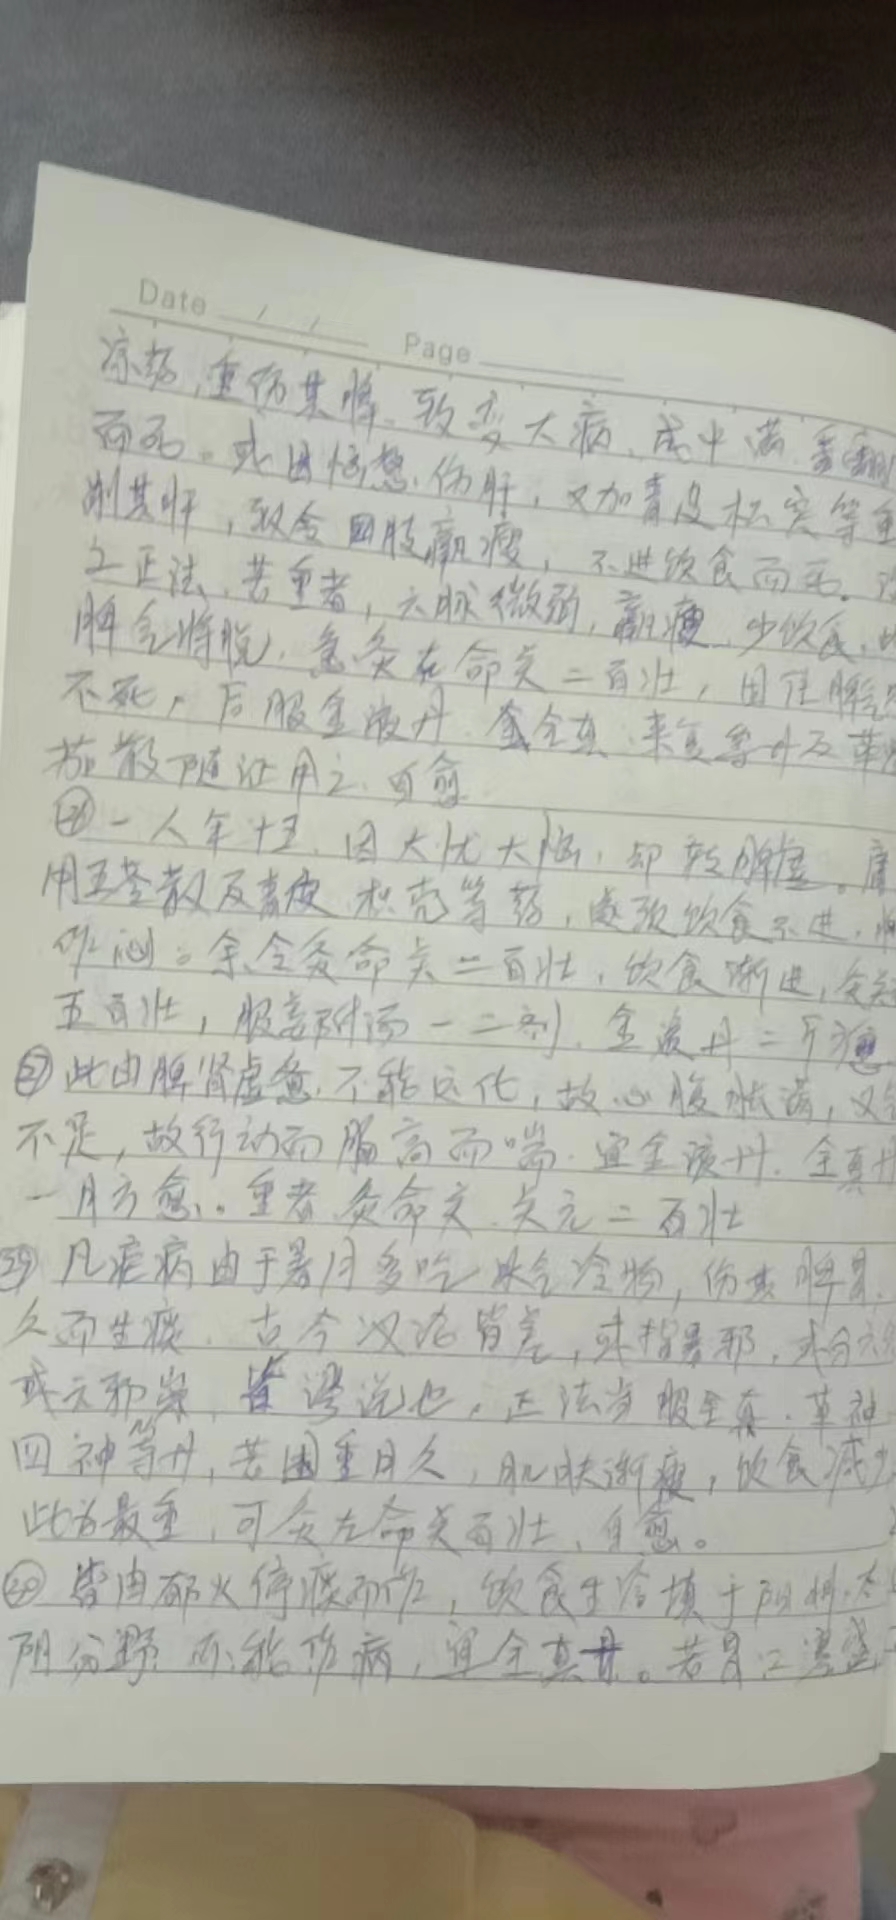 Date / / Page
凉药,重伤其脾,致变大病,成中满、番
而死。或因恼怒伤肝,又加青皮枳实等重
削其肝,致令四肢羸瘦,不进饮食而死。
之正法,若重者,六脉微弱,羸瘦,少饮食,
脾气将脱,急灸左命关二百壮,固住脾气
不死,后服金液丹、全真、来复等丹及草
散随证用之,自愈
一人年十五,因大忧大恼,却转脾虚。庸
用五苓散及青皮、枳壳等药,遂致饮食不进,
作闷。余令灸命关二百壮,饮食渐进,灸关
五百壮,服姜附汤一二剂,金液丹二斤愈
㊲此由脾肾虚惫,不能运化,故心腹胀满,又
不足,故行动而脑高而喘,宜金液丹、全真丹
一月方愈。重者,灸命关、关元二百壮
㊴凡疟病由于暑月多吃冰冷物,伤其脾胃,
久而生痰,古今议论皆差,或指暑邪,或分六
或云邪祟,皆谬说也,正法当服全真、草神
四神等丹,若困重日久,肌肤渐瘦,饮食减少
此为最重,可灸左命关百壮,自愈。
㊵皆由郁火停痰而作,饮食生冷填于阴
阴分野,而能作病,宜全真丹。若胃口寒盛